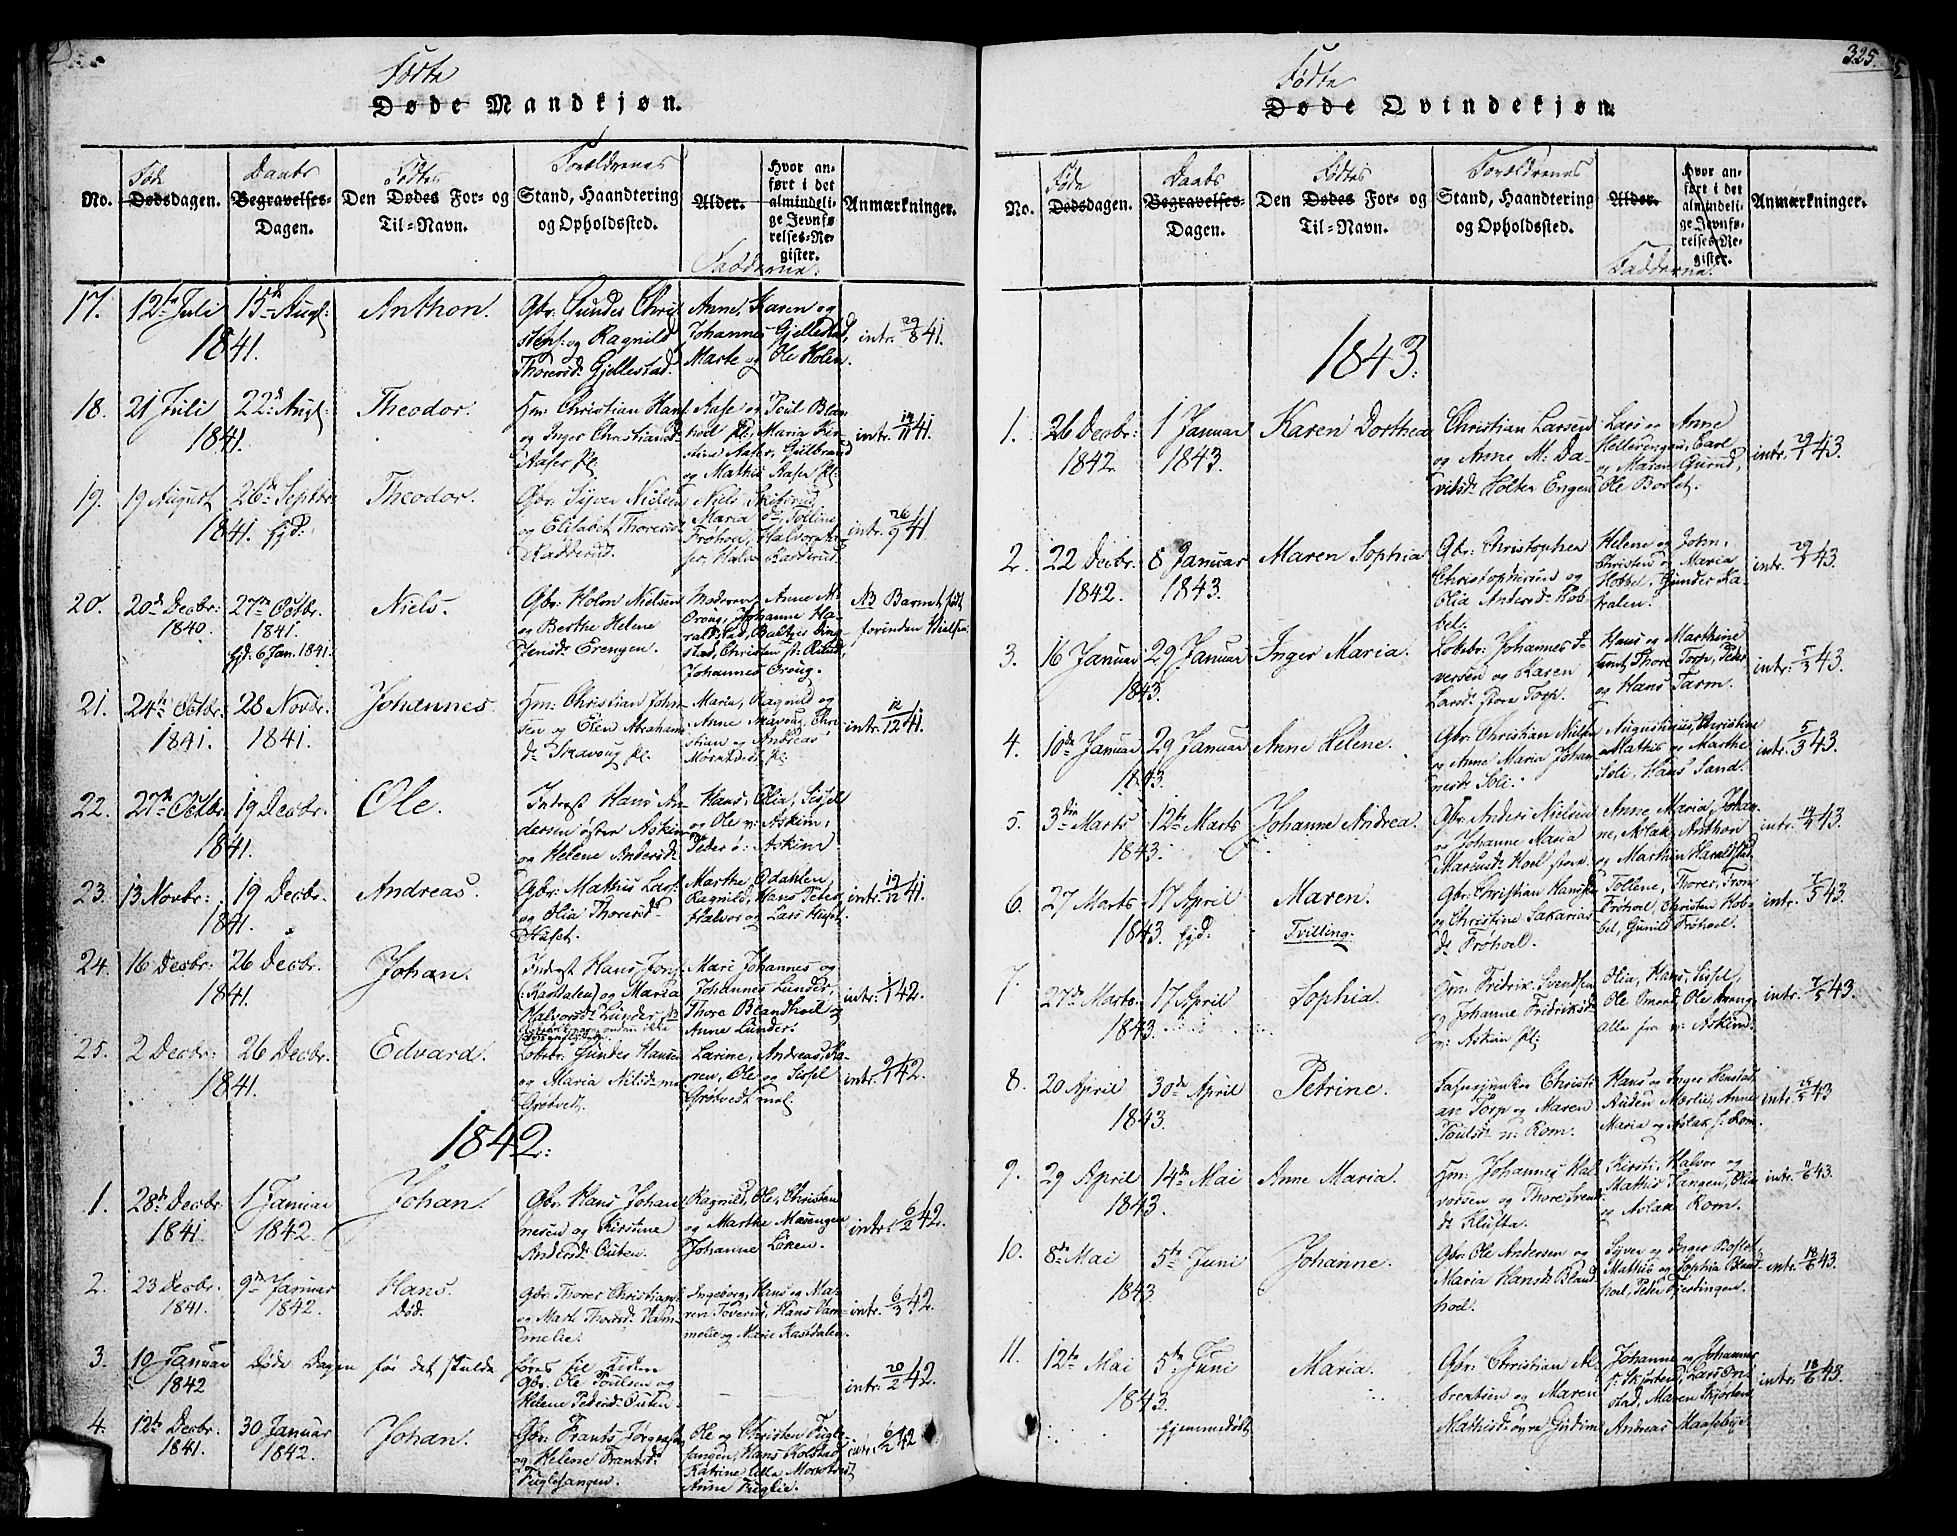 325.
Fødte
Døde Mandkjøn.
No.
Føde
Dødsdagen.
Daabs
Begravelses-
Dagen.
Fødtes
Den Dødes For- og
Til-Navn.
Forældrenes
Stand, Haandtering
og Opholdssted.
Alder.
Fadderne.
Hvor an-
ført i det
almindeli-
ge Jevnfø-
relses-Re-
gister.
Anmærkninger.
17.
12te Juli
1841.
15de Augt:
Anthon.
Gbr: Gundes Chri-
stens: og Ragnild
Thoresd: Gjellestad.
Anne, Karen og
Johannes Gjellestad,
Marte og Ole Holen.
intr: 29/8 41.
18.
21 Juli
1841.
22d Augt:
Theodor.
Hm: Christian Hans
og Inger Christiansd:
Aaser pl:
Aase og Poul Blan
hoel pl:, Maria Kir-
stine Aaser, Gulbrand
og Mathis Aaser pl:
intr: 14/11 41.
19.
19 August
1841.
26de Septbr:
hjd:
Theodor.
Gbr: Syver Nielsen
og Elisabet Thoresd:
Kadderud.
Niels
Maria
Frøhoel, Halvor Aa-
ser, Kadderud.
intr: 26/9 41.
20.
20d Decbr:
1840.
27de Octbr.
1841.
hjd: 6 Jan. 1841.
Niels.
Gbr: Holen Nielsen
og Berthe Helene
Jensd: Erengen.
Moderen, Anne M.
Oroug, Johanne Ha-
raldstad,
stad, Christen
Johannes Oroug.
NB Barnet født
forinden
21.
24de Octbr.
1841.
28 Novbr.
1841.
Johannes.
Hm: Christian John-
sen og Elen Abraham
d: Skavoug pl.
Maren, Ragnild og
Anne Skavoug, Chri-
stian og Andreas
Mørstvedt pl:
intr: 12/12 41.
22.
27de Octbr.
1841.
19 Decbr.
Ole.
Inderst Hans An-
dersen østre Askim
og Helene Andersd:
Hans, Olia, Sissel
og Ole v: Askim,
Peder ø: Askim
23.
13 Novbr:
1841.
19 Decbr.
Andreas.
Gbr: Mathis Lars:
og Olia Thoresd:
Huset.
Marthe Odahlen,
Ragnild, Hans Peter,
Halvor og Lars Huset.
intr: 19/12 41.
24.
16 Decbr:
1841.
26 Decbr.
Johan.
Inderst Hans Jons:
(:Kasdalen) og Maria
Halvorsd: Lunder
Mari Johannes og
Johannes Lunder,
Thore Blandhoel og
Anne Lunder.
intr: 1/1 42.
25.
2 Decbr:
1841.
26 Decbr.
Edvard.
Gundes Hansen
og Maria Nilsd:
Grøtvedt.
Larine, Andreas, Ka-
ren, Ole og Sissel
Grøtvedt
intr: 9/1 42.
1842.
1.
28de Decbr
1841.
1 Januar
1842.
Johan.
Gbr. Hans Johan-
nesen og Kirstine
Andersd: Outen.
Ragnild, Ole, Christen
og Marthe Masengen
Johanne Løken.
intr: 6/2 42.
2.
23 Decbr.
1841.
9de Januar
1842.
Hans.
Død.
Gbr: Thorer Christians:
og Mart: Thoresd: Vam-
melie.
Ingeborg, Hans og Ma-
ren Toverud, Hans Vam-
melie og Marie Kasdalen.
intr. 6/3 42.
3.
19 Januar
1842
Døde Dagen før det skulde føres til Kirken
Gbr. Ole Poulsen og
Helene Pedersd: Outen.
intr: 20/2 42.
4.
12te Decbr:
1841.
30 Januar
1842.
Johan.
Gbr. Frants Jørgens:
og Helene Frantsd:
Fuglesangen.
Ole og Christen Fugle-
sangen, Hans Kolstad,
Katrine lille Mørstvedt
Anne Fuglie.
intr: 6/2 42
Fødte
Døde Qvindekjøn.
No.
Føde
Dødsdagen.
Daabs
Begravelses-
Dagen.
Fødtes
Den Dødes For- og
Til-Navn.
Forældrenes
Stand, Haandtering
og Opholdssted.
Alder.
Fadderne.
Hvor an-
ført i det
almindeli-
ge Jevnfø-
relses-Re-
gister.
Anmærkninger.
1843.
1.
26 Decbr:
1842.
1 Januar
1843.
Karen Dorthea
Christian Larsen
og Anne M: Da-
vidsd: Holter Engen
Lars og Anne
Hellesengen, Carl
og Maren Gurud,
Ole Borset.
intr: 29/1 43.
2.
22 Decbr.
1842.
8 Januar
1843.
Maren Sophia
Gbr: Christopher
Christophersen og
Olia Andersd: Hob-
bel.
Helene og John,
Christen og Maria
Hobbel, Gunder Ka-
tralen.
intr: 29/1 43.
3.
16 Januar
1843.
29 Januar
Inger Maria.
Johannes I-
versen og Karen
Larsd: store Torp.
Hans og Marthine
Thore Torp, Peder
og Hans Tarm.
intr: 5/3 43.
4.
10de Januar
1843.
29 Januar
Anne Helene.
Gbr: Christian Nielsen
og Anne Maria Johan-
nesd: Soli.
Augustinus, Christine
Mathis og Marthe
Soli, Hans Sand.
intr: 5/3 43.
5.
3die Marts
1843.
12te Marts
Johanne Andrea.
Gbr. Anders Nielsen
og Johanne Maria
Marcusd: Hoel
Anne Maria, Johan-
ne, Aslak, Anthon
og Marthin Haraldstad
intr: 14/4 43.
6.
27 Marts
1843.
17 April
hjd.
Maren.
Tvilling.
Gbr. Christian Hans:
og Christine Sakarias-
d: Frøhoel.
Tollene, Thores, Tron
Frøhoel, Christen Hob-
bel, Gunild Frøhoel.
intr: 7/5 43.
7.
27de Marts.
1843.
17 April
Sophia.
Hm: Fridrik Svendsen
og Johanne Fridriksd:
v: Askim pl:
Olia, Hans, Sissel,
Ole Ole
alle fra v: Askim.
intr: 7/5 43.
8.
20 April
1843.
30de April
Petrine.
Christi-
an Torp og Maren
Poulsd: n: Rom.
Hans og Inger Henstad
Auden Mærlie, Anne
Maria og Aslak s: Rom.
intr. 25/5 43
9.
29 April
1843.
14de Mai
Anne Maria.
Hm: Johannes Hal-
vorsen og Thore Svend
d: Klufta.
Kirsti, Halvor og
Mathis Langen, Olia
og Aslak Rom.
intr. 11/6 43.
10.
8de Mai
1843.
5te Juni
Johanne.
Gbr: Ole Andersen og
Maria Hansd: Bland-
hoel.
Syver og Inger
Mathis og Sophia Bland-
hoel, Peder Fjerdingen.
intr. 18/6 43.
11.
12te Mai
1843.
5te Juni
hjemmedøbt
Maria.
Gbr. Christian Al-
brentsen og Maren
Mathisd: øvre Gudim
Johanne og Johannes
s: Skjørten, Lars
stad, Maren Skjørten
Andreas Maaseby
intr: 18/6 43.